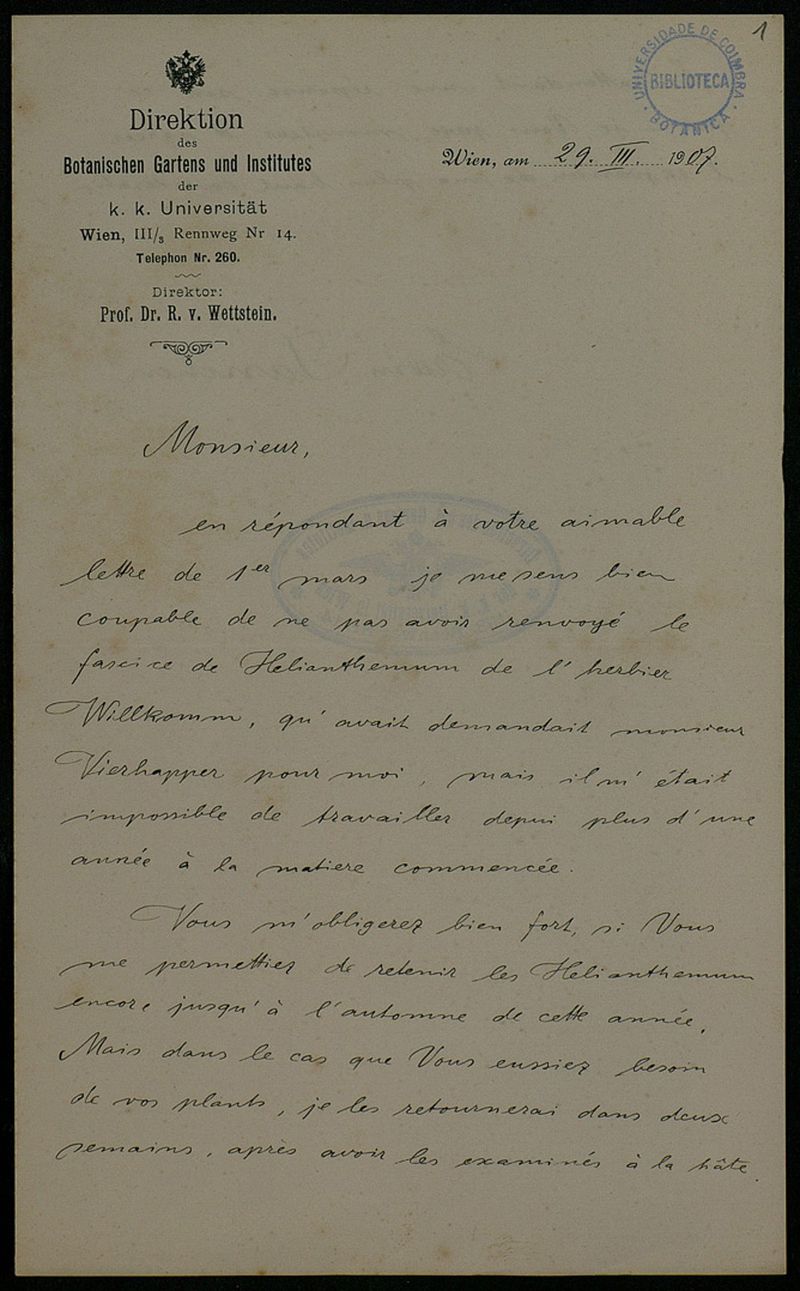 1
UNIVERSIDADE DE COIMBRA
BIBLIOTECA
BOTANICA
Direktion
des
Botanischen Gartens und Institutes
der
k. k. Universität
Wien, III/3 Rennweg Nr 14.
Telephon Nr. 260.
Direktor:
Prof. Dr. R. v. Wettstein.
Wien, am 29. III. 1907.
Monsieur,
en répondant à votre aimable
lettre de 1er mars je me sens bien
coupable de ne pas avoir renvoyé le
fascice de Helianthemum de l'herbier
Willkomm, qu'avait demandait monsieur
Vierhapper pour moi, mais il m'était
impossible de travailler depui plus d'une
année à la matiere commencée.
Vous m'obligerez bien fort, si Vous
me permettiez de retenir les Helianthemum
encore jusqu'à l'automne de cette année.
Mais dans le cas que Vous eussiez besoin
de vos plants, je les retournerai dans deux
semains, après avoir les examinés à la hâte.